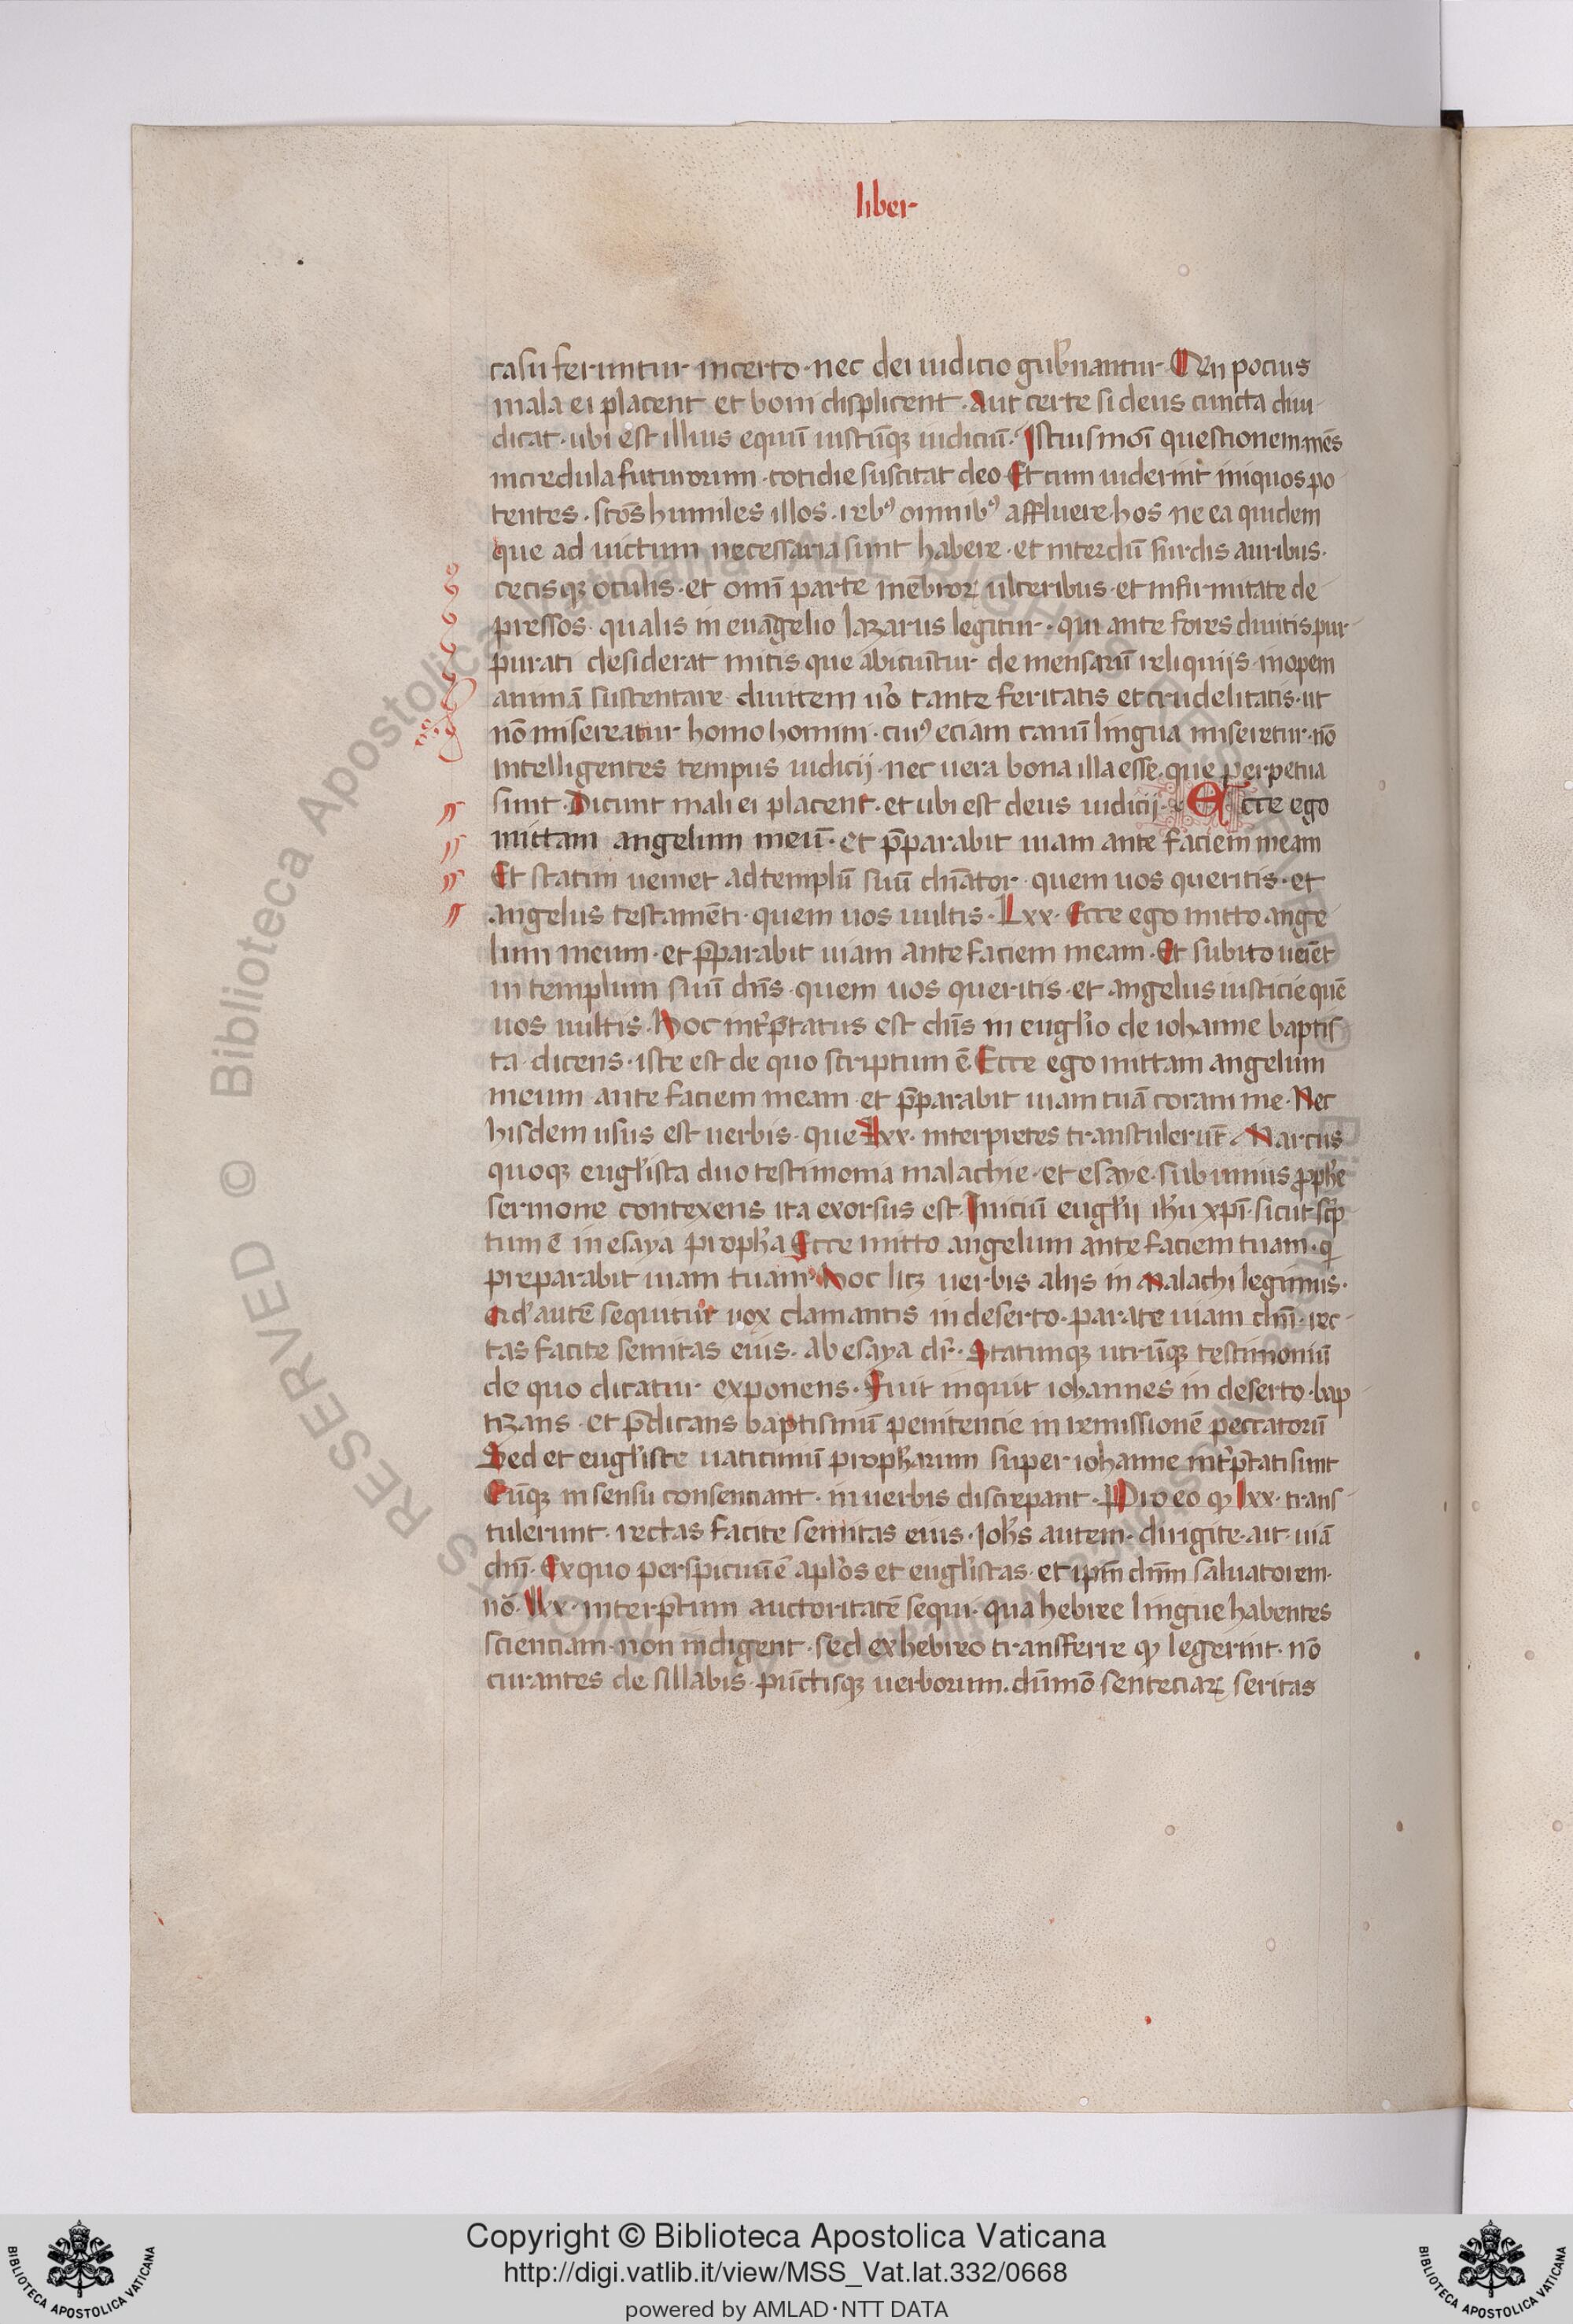 liber
casu feruntur incerto · nec dei iudicio gub̓nantur · Dn̄ pocius
mala ei placent et boni displicent · Aut certe si deus cuncta diiu
dicat · ubi est illius equū iustūqꝫ iudiciū · Istiusmōi questionem mēs
incredula futurorum · cotidie suscitat deo · Et cum uiderint iniquos po
tentes · sc̄os humiles illos · rebꝰ omnibꝰ affluere hos ne ea quidem
que ad uictum necessaria sunt habere · et interdū surdis auribus ·
cecisqꝫ oculis · et omī parte mēbroꝝ ulceribus · et infirmitate de
pressos · qualis in euāgelio lazarus legitur · qui ante fores diuitis pur
purati desiderat micis que abiciūtur de mensarū reliquijs inopem
animā sustentare · diuitem u̓o tante feritatis et crudelitatis · ut
nō misereatur homo homini · cuiꝰ eciam canū lingua miseretur · nō
intelligentes tempus iudicij · nec uera bona illa esse · que perpetua
sunt · Dicunt mali ei placent · et ubi est deus iudicij · Ecce ego
mittam angelum meū · et p̄parabit uiam ante faciem meam
Et statim ueniet ad templū suū dn̄ator · quem uos queritis · et
angelus testamēti · quem uos uultis · Lxx · Ecce ego mitto ange
lum meum · et p̄parabit uiam ante faciem meam · Et subito ueiēt
in templum suū dn̄s quem uos queritis · et angelus iusticie quē
uos uultis · Hoc int̓p̄tatus est dn̄s in eugl̓io de iohanne baptis
ta · dicens · iste est de quo scriptum ē Ecce ego mittam angelum
meum ante faciem meam · et p̄parabit uiam tuā coram me · Nec
hisdem usus est uerbis · que lxx · interpretes transtulerūt · Marcus
quoqꝫ eugl̓ista duo testimonia malachie · et esaye · sub unius ꝓph̓e
sermone contexens ita exorsus est · Iniciū eugl̓ii ih̓u xp̄i · sicut sc̓p
tum ē in esaya proph̓a Ecce mitto angelum ante faciem tuam · q̄
preparabit uiam tuam · hoc licꝫ uerbis alijs in Malachi legimus ·
Qd̓ autē sequitur uox clamantis in deserto · parate uiam dn̄i · rec
tas facite semitas eius · ab esaya dr̓ · Statimqꝫ utrūqꝫ testimoniū
de quo dicatur exponens · Fuit inquit iohannes in deserto · bap
tizans · et p̄dicans baptismū penitencie in remissionē peccatorū
Sed et eugl̓iste uaticiniū proph̓arum super iohanne int̓p̄tati sunt
Cūqꝫ in sensu consenciant · in uerbis discrepant · Pro eo qꝫ lxx · trans
tulerunt · rectas facite semitas eius · Ioh̓s autem · dirigite · ait · uiā
dn̄i · Ex quo perspicuū ē apl̓os et eugl̓istas · et ip̄m dn̄m saluatorem ·
nō · lxx · interp̄tum auctoritatē sequi · qua hebree lingue habentes
scienciam · non indigent · sed ex hebreo transferre qꝫ legerint · nō
curantes de sillabis pūctisqꝫ uerborum · dūmō senteciaꝝ seritas
© Biblioteca Apostolica Vaticana ALL RIGHTS RESERVED
Copyright © Biblioteca Apostolica Vaticana
http://digi.vatlib.it/view/MSS_Vat.lat.332/0668
powered by AMLAD·NTT DATA
BIBLIOTECA APOSTOLICA VATICANA
BIBLIOTECA APOSTOLICA VATICANA